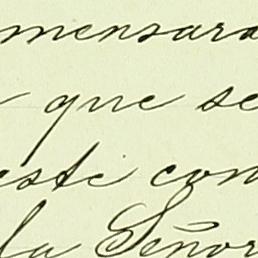 mensara
que se
este con
la Señor